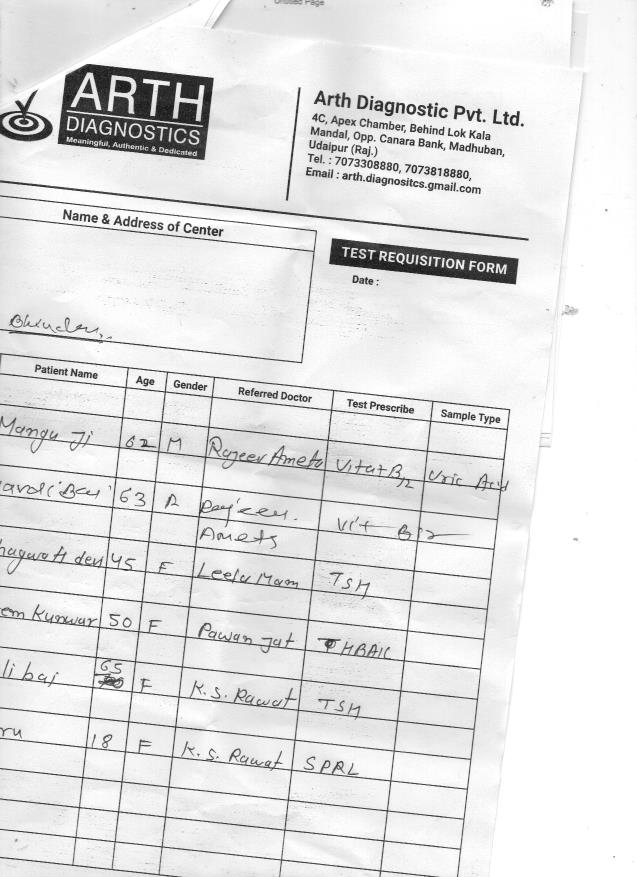 Untitled Page
ARTH
DIAGNOSTICS
Meaningful, Authentic & Dedicated
Arth Diagnostic Pvt. Ltd.
4C, Apex Chamber, Behind Lok Kala
Mandal, Opp. Canara Bank, Madhuban,
Udaipur (Raj.)
Tel. : 7073308880, 7073818880,
Email : arth.diagnositcs.gmail.com
Name & Address of Center
TEST REQUISITION FORM
Date :
Patient Name Age Gender Referred Doctor Test Prescribe Sample Type
Mangu Ji 62 M Rajeev Ameta B12 Uric Acid
63 Vit B12
Ameta
hagwati devi 45 F Leela Mam TSH
em Kunwar 50 F Pawan Jat HBA1C
li bai 65 F K.S. Rawat TSH
ru 18 F K.S. Rawat SPRL